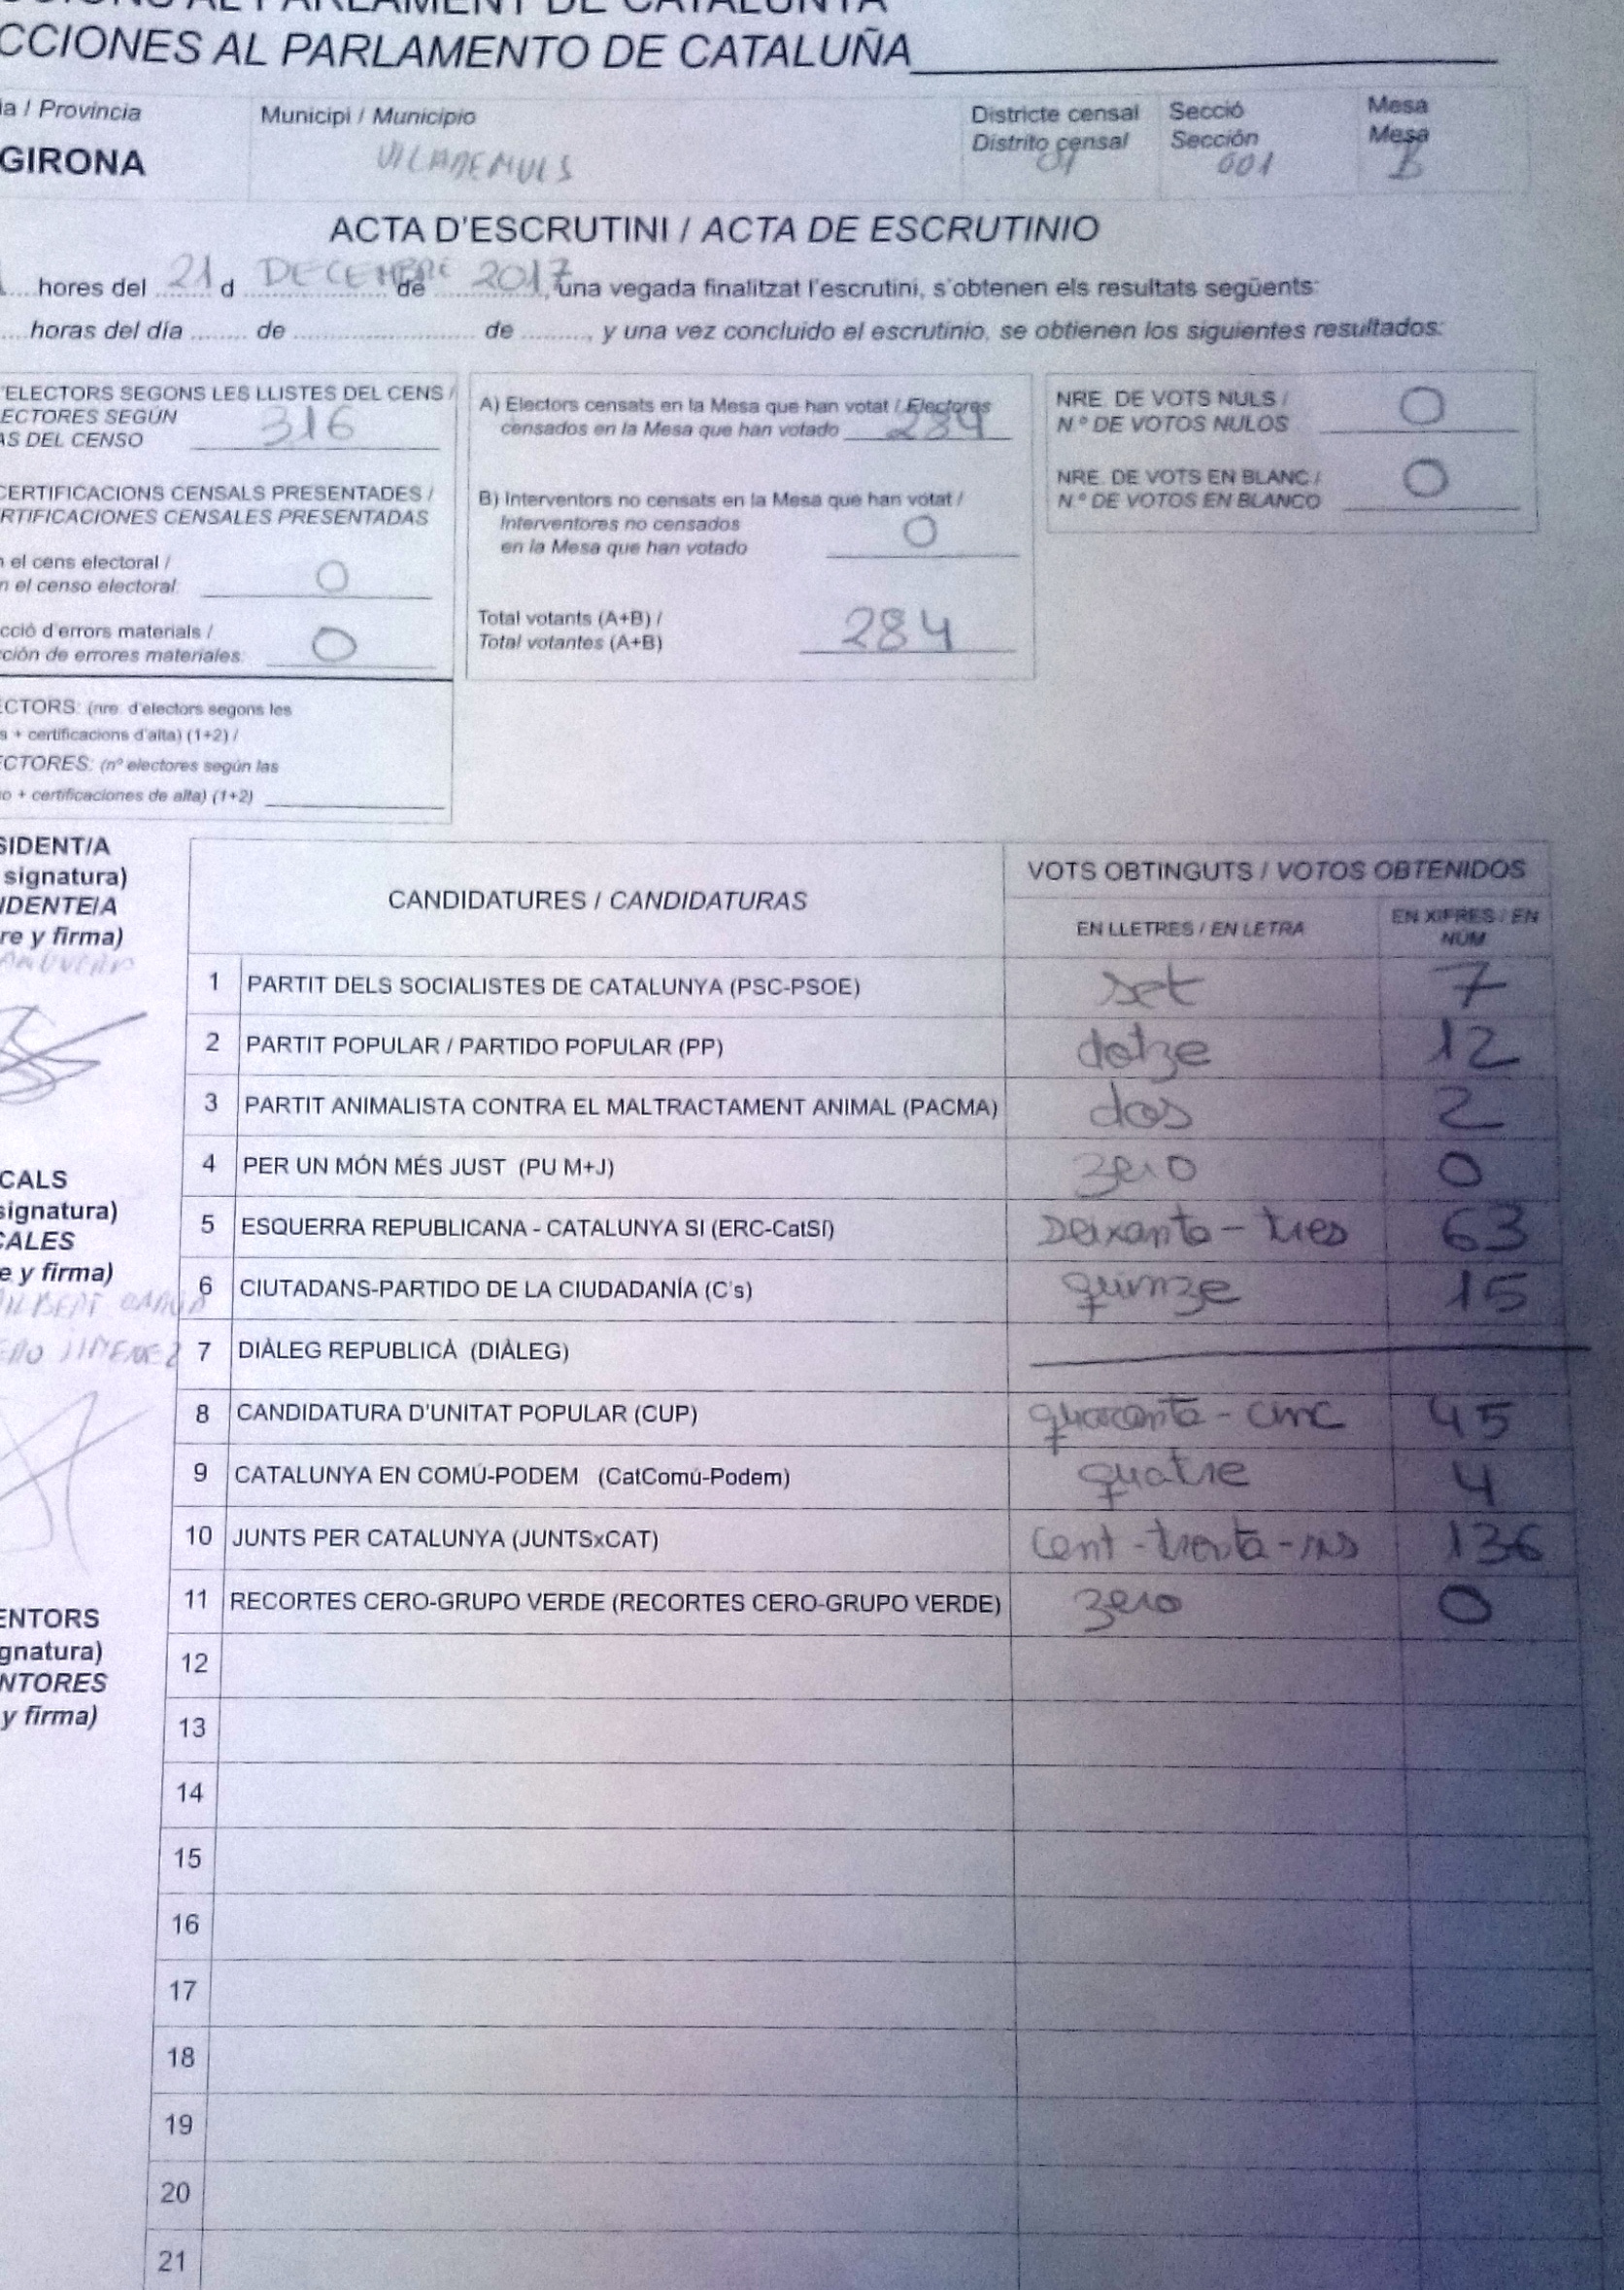 CCIONS AL PARLAMENT DE CATALUNYA
CCIONES AL PARLAMENTO DE CATALUÑA
ia / Provincia
GIRONA
Municipi / Municipio
VILADEMULS
Districte censal
Distrito censal
01
Secció
Sección
001
Mesa
Mesa
B
ACTA D'ESCRUTINI / ACTA DE ESCRUTINIO
hores del 21 d DECEMBRE de 2017, una vegada finalitzat l'escrutini, s'obtenen els resultats següents:
horas del día ........ de ...................... de .........., y una vez concluido el escrutinio, se obtienen los siguientes resultados:
'ELECTORS SEGONS LES LLISTES DEL CENS /
LECTORES SEGÚN
AS DEL CENSO 316
CERTIFICACIONS CENSALS PRESENTADES /
RTIFICACIONES CENSALES PRESENTADAS
n el cens electoral /
n el censo electoral: 0
cció d'errors materials /
ción de errores materiales: 0
ECTORS: (nre. d'electors segons les
s + certificacions d'alta) (1+2) /
ECTORES: (nº electores según las
o + certificaciones de alta) (1+2)
A) Electors censats en la Mesa que han votat / Electores
censados en la Mesa que han votado 284
B) Interventors no censats en la Mesa que han votat /
Interventores no censados
en la Mesa que han votado 0
Total votants (A+B) /
Total votantes (A+B) 284
NRE. DE VOTS NULS /
N.º DE VOTOS NULOS 0
NRE. DE VOTS EN BLANC /
N.º DE VOTOS EN BLANCO 0
SIDENT/A
signatura)
IDENTE/A
re y firma)
CALS
signatura)
CALES
e y firma)
JIMENEZ
ENTORS
gnatura)
NTORES
y firma)
CANDIDATURES / CANDIDATURAS
VOTS OBTINGUTS / VOTOS OBTENIDOS
EN LLETRES / EN LETRA
EN XIFRES / EN
NÚM
1 PARTIT DELS SOCIALISTES DE CATALUNYA (PSC-PSOE) set 7
2 PARTIT POPULAR / PARTIDO POPULAR (PP) dotze 12
3 PARTIT ANIMALISTA CONTRA EL MALTRACTAMENT ANIMAL (PACMA) dos 2
4 PER UN MÓN MÉS JUST (PU M+J) zero 0
5 ESQUERRA REPUBLICANA - CATALUNYA SI (ERC-CatSí) Seixanta - tres 63
6 CIUTADANS-PARTIDO DE LA CIUDADANÍA (C's) quinze 15
7 DIÀLEG REPUBLICÀ (DIÀLEG)
8 CANDIDATURA D'UNITAT POPULAR (CUP) quaranta - cinc 45
9 CATALUNYA EN COMÚ-PODEM (CatComú-Podem) quatre 4
10 JUNTS PER CATALUNYA (JUNTSxCAT) Cent - trenta - sis 136
11 RECORTES CERO-GRUPO VERDE (RECORTES CERO-GRUPO VERDE) zero 0
12
13
14
15
16
17
18
19
20
21